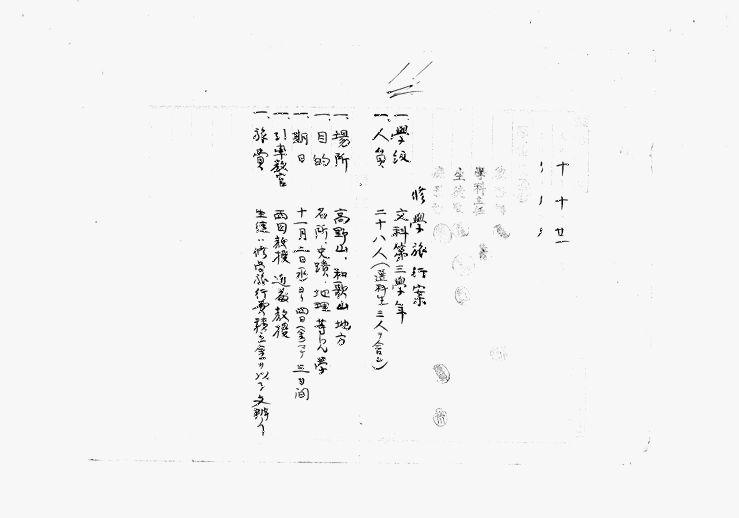 十、十、廿一
學科主任
修學旅行案
一、學級 文科第三學年
一、人員 二十八人(選科生三人ヲ含ム)
一、場所 高野山、和歌山地方
一、目的 名所、史蹟、地理等見學
一、期日 十一月二日(水)ヨリ四日(金)マデ三日間
一、引率教官 西田教授 近藤教授
一、旅費 生徒ハ修學旅行費積立金ヲ以テ支辨ス